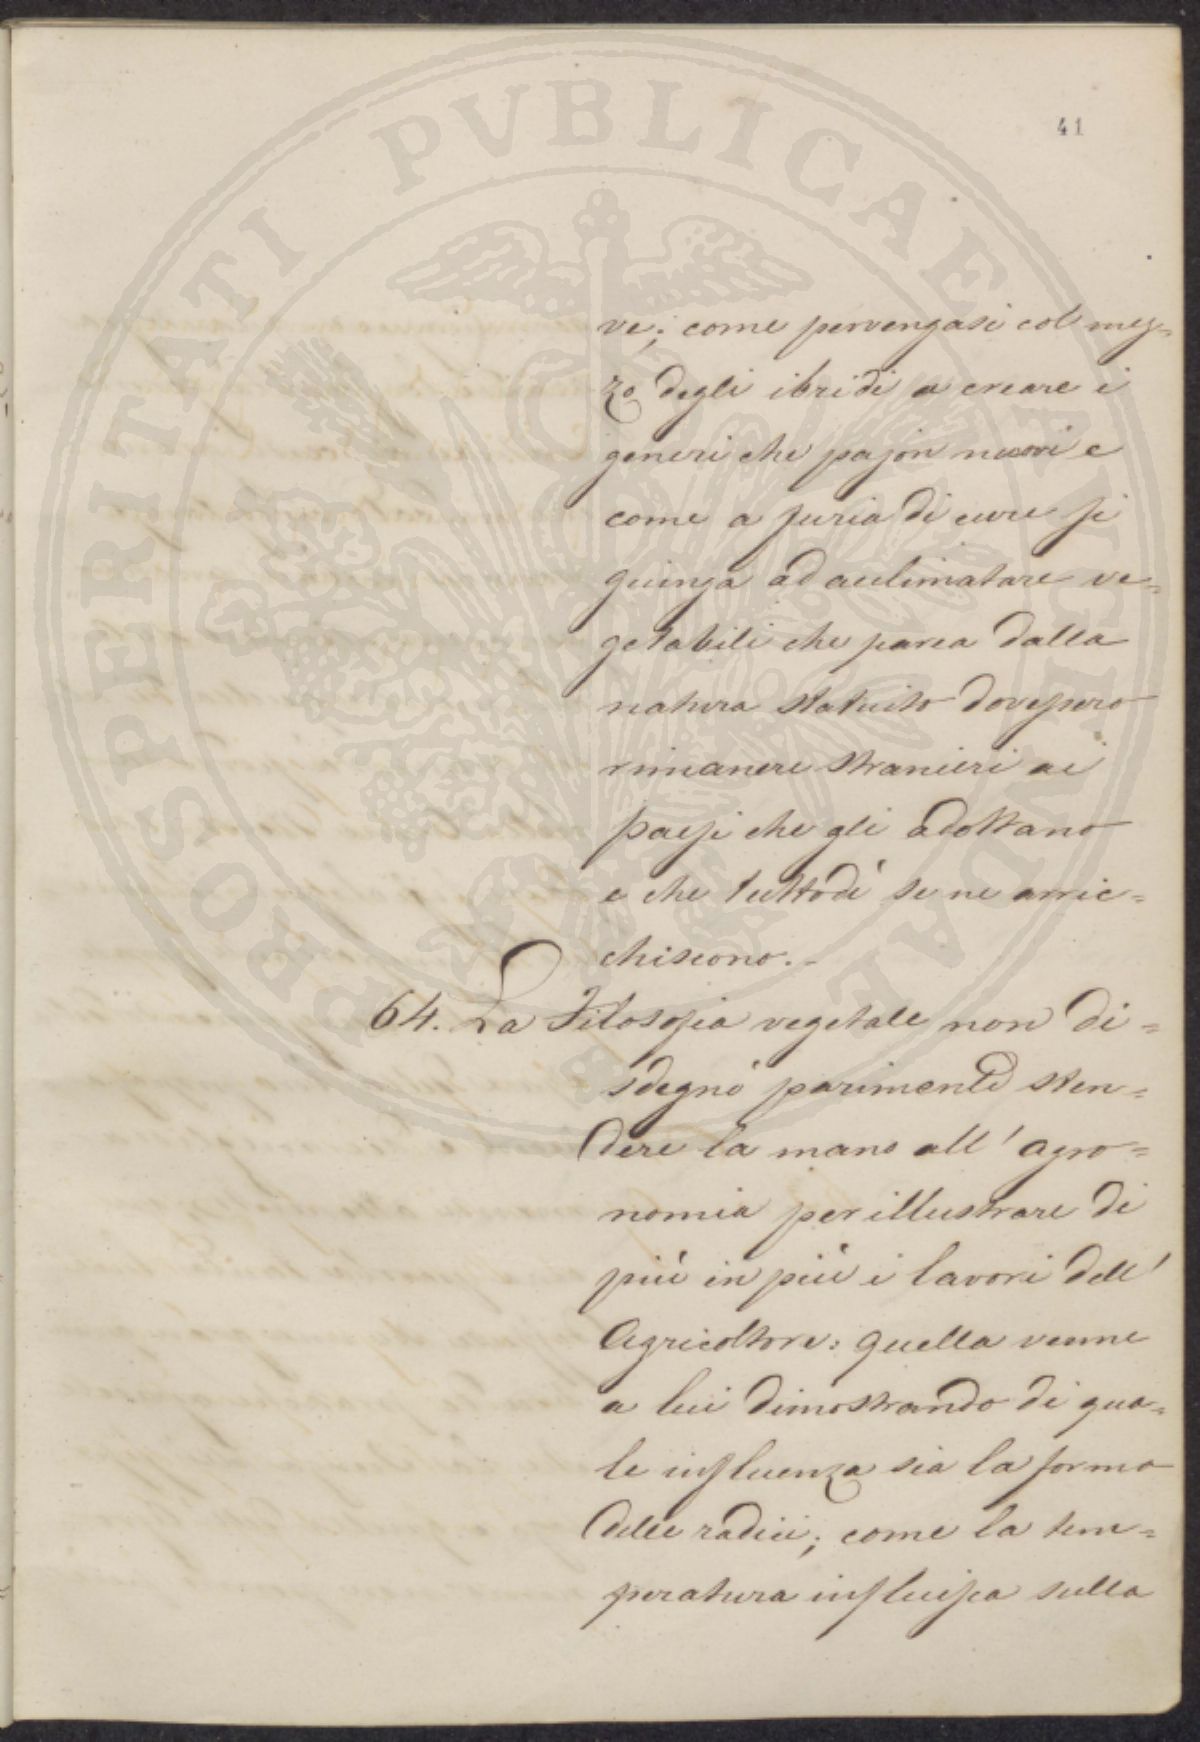 41
ve; come pervengasi col mez=
zo degli ibridi a creare i
generi che pajon nuovi e
come a furia di cure si
giunga ad acclimatare ve=
getabili che parea dalla
natura statuito dovessero
rimanere stranieri ai
paesi che gli adottano
e che tuttodì se ne arric=
chiscono.-
64. La Filosofia vegetale non di=
sdegnò parimenti sten=
dere la mano all'agro=
nomia per illustrare di
più in più i lavori dell'
Agricoltore: quella venne
a lui dimostrando di qua=
le influenza sia la forma
delle radici; come la tem=
peratura influissa sulla
PROSPERITATI PVBLICAE AVGENDAE